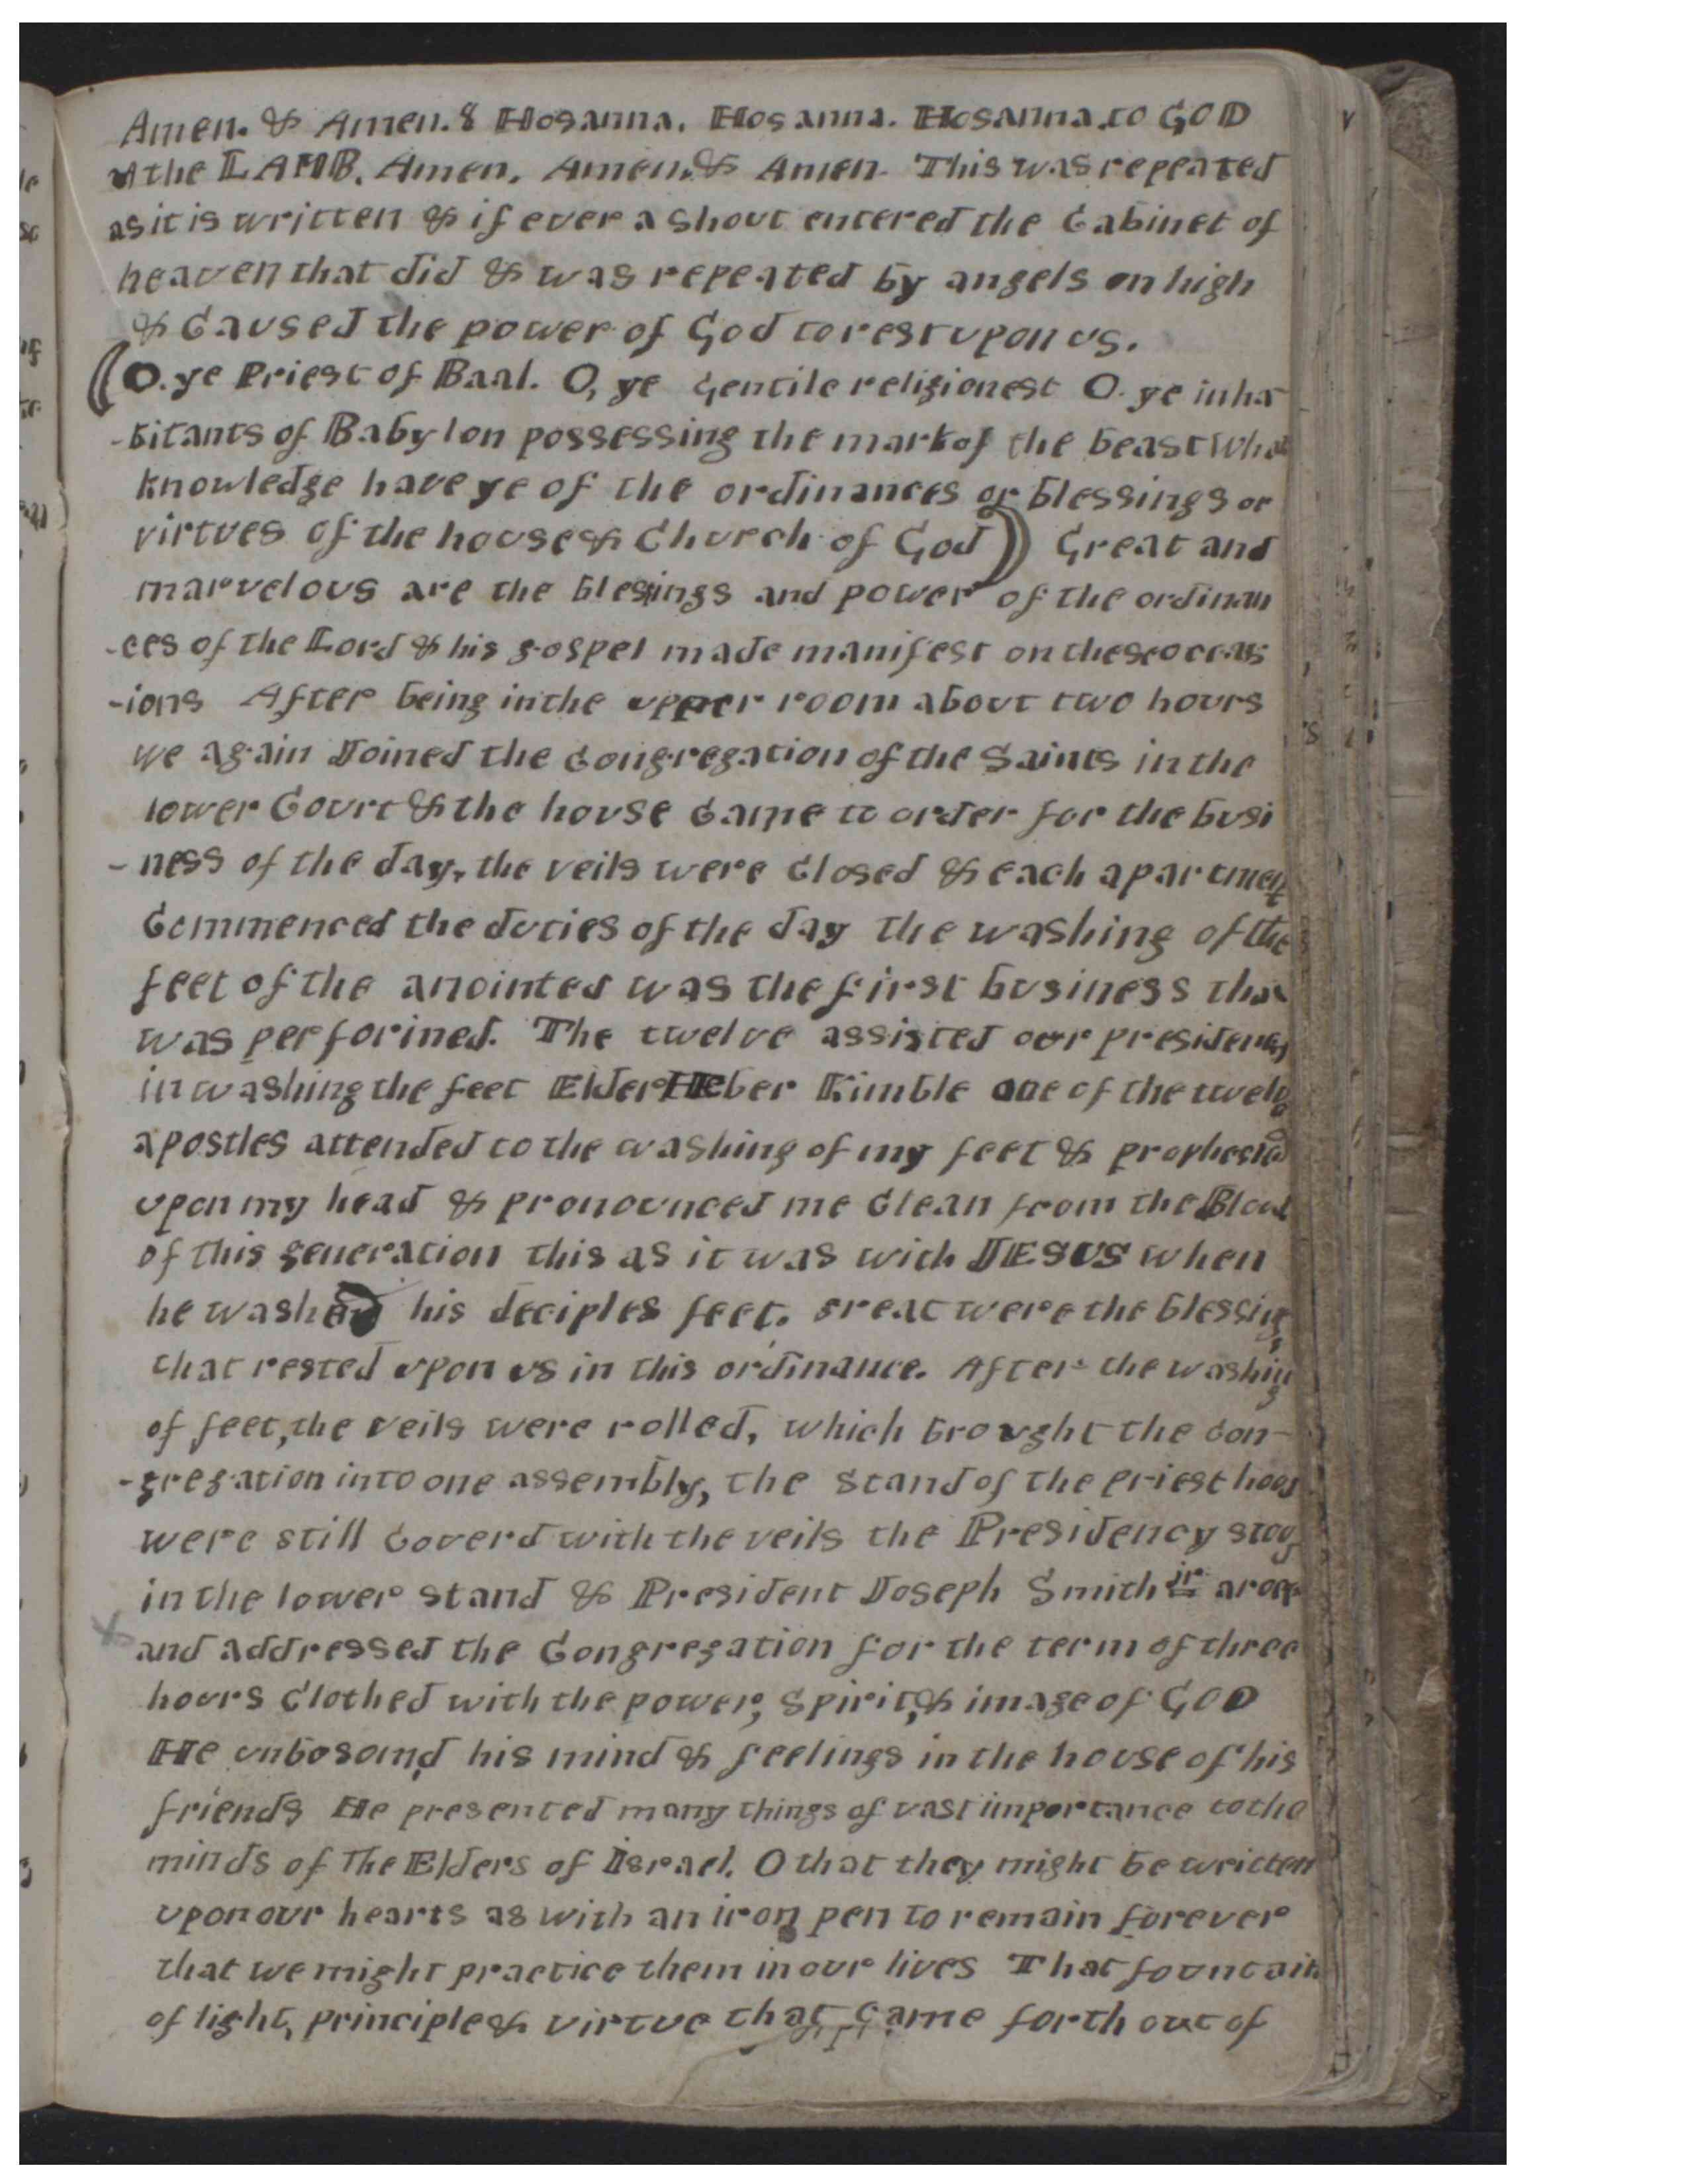 Amen. & Amen. & Hosanna. Hosanna. Hosanna. to GOD
& the LAMB. Amen, Amen, & Amen. This was repeated
as it is written & if ever a shout entered the Cabinet of
heaven that did & was repeated by angels on high
& Caused the power of God to rest upon us.
(O. ye Priest of Baal. O, ye Gentile religionest O. ye inha
-bitants of Babylon possessing the mark of the beast What
knowledge have ye of the ordinances or blessings or
virtues of the house & Church of God) Great and
marvelous are the blessings and power of the ordinan
-ces of the Lord & his gospel made manifest on these occas
-ions After being in the upper room about two hours
we again Joined the Congregation of the Saints in the
lower Court & the house Came to order for the busi
-ness of the day, the veils were Closed & each apartment
Commenced the duties of the day the washing of the
feet of the anointed was the first business that
was performed. The twelve assisted our presidency
in washing the feet Elder Heber Kimble one of the twelve
apostles attended to the washing of my feet & prophesied
upon my head & pronounced me Clean from the Blood
of this generation this as it was with JESUS when
he washed his deciples feet. Great were the blessings
that rested upon us in this ordinance. After the washing
of feet, the veils were rolled, which brought the con-
-gregation into one assembly, the stand of the priesthood
were still Coverd with the veils the Presidency stood
in the lower stand & President Joseph Smith jr. arose
and addressed the Congregation for the term of three
hours Clothed with the power, spirit, & image of GOD
He unbosomd his mind & feelings in the house of his
friends He presented many things of vast importance to the
minds of The Elders of Israel. O that they might be written
upon our hearts as with an iron pen to remain forever
that we might practice them in our lives That fountain
of light, principle & virtue that came forth out of